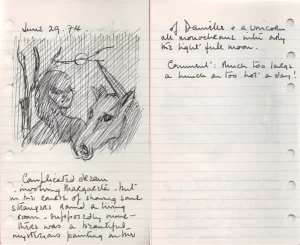 June 29. 74
Complicated dream
involving Margarete - but
in the course of showing some
strangers round a living
room - supposedly mine -
there was a beautiful
mysterious painting on the
of Danielle & a unicorn
all monochrome with only
the light full moon.
Comment: Much too large
a lunch on too hot a day!